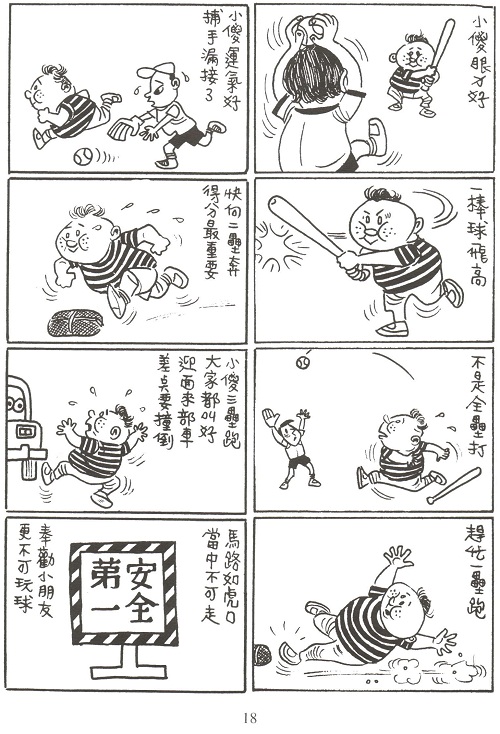 小傻眼力好
一棒球飛高
不是全壘打
趕忙一壘跑
小傻運氣好
捕手漏接了
快向二壘奔
得分最重要
小傻三壘跑
大家都叫好
迎面來部車
差点要撞倒
馬路如虎口
當中不可走
安全
第一
奉勸小朋友
更不可玩球
18